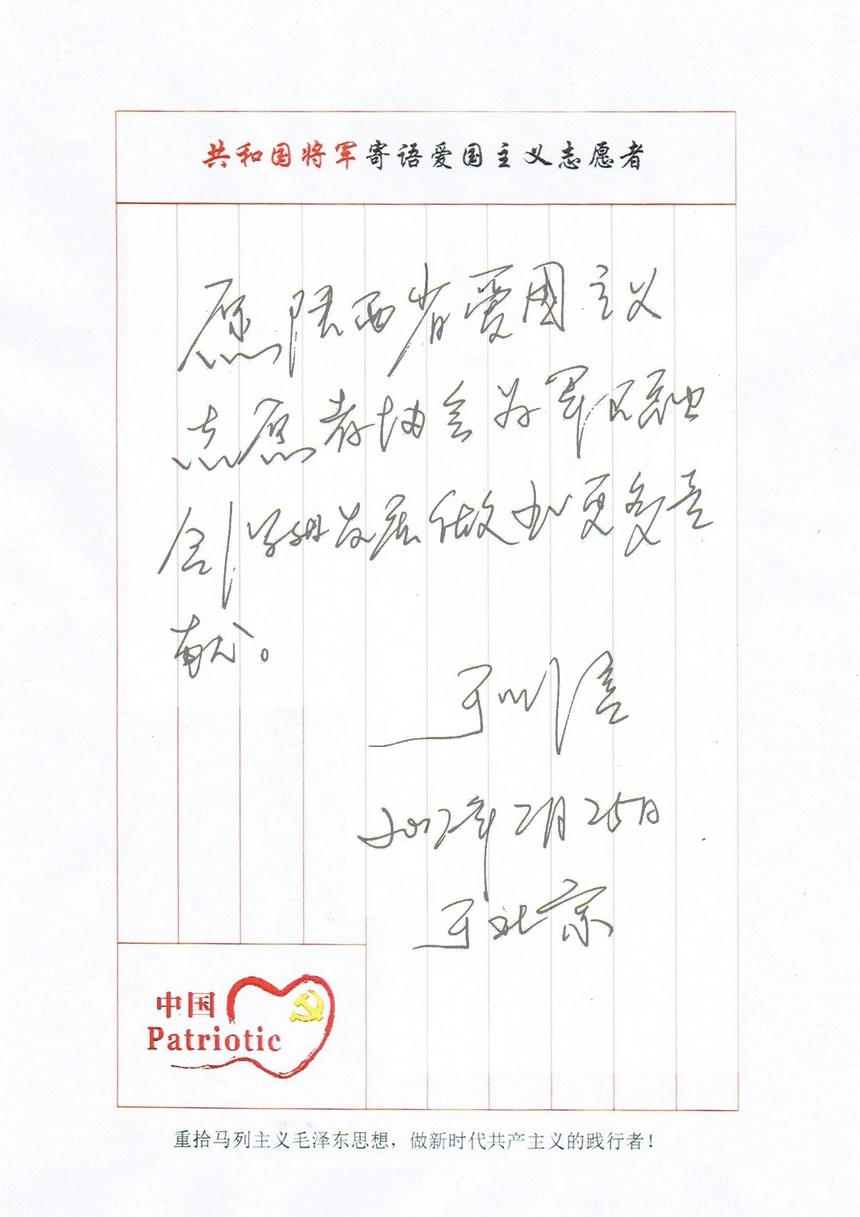 共和国将军寄语爱国主义志愿者
愿陕西省爱国主义
志愿者协会为军民融
合深级发展做出更多贡
献。
于川信
2017年2月25日
于北京
中国
Patriotic
重拾马列主义毛泽东思想，做新时代共产主义的践行者！